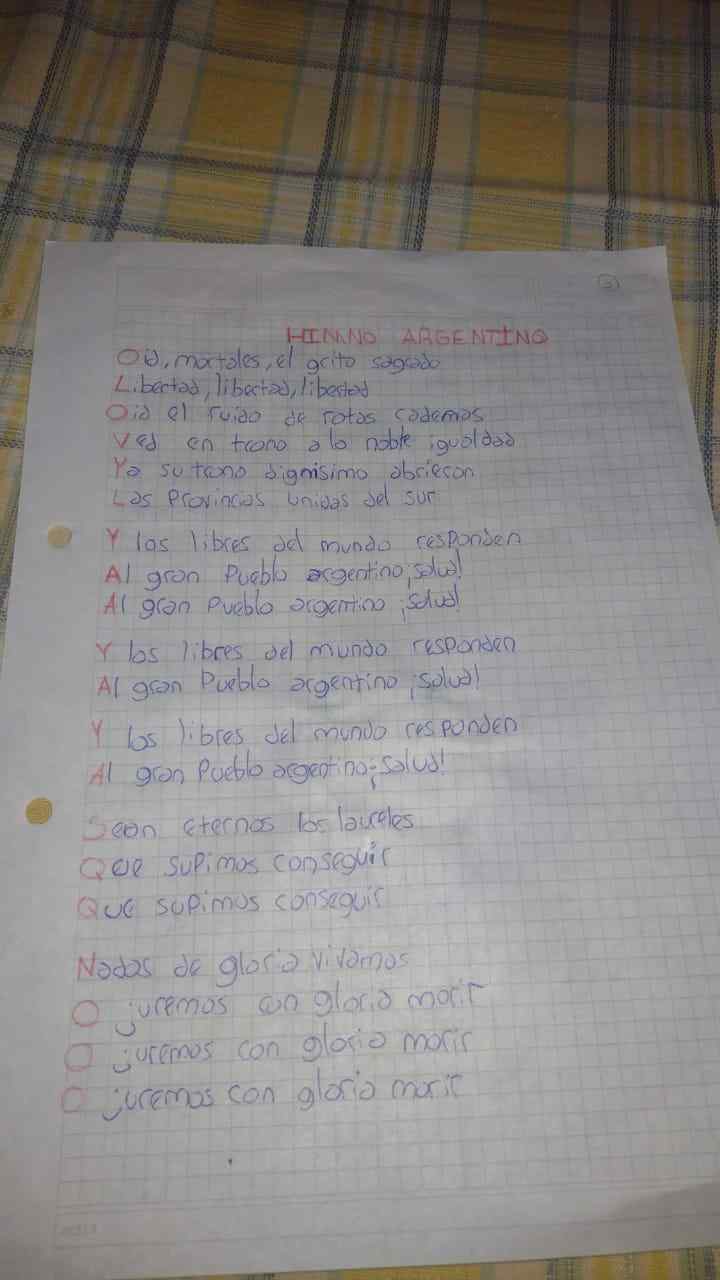 3
HIMNO ARGENTINO
Oid, mortales, el grito sagrado
Libertad, libertad, libertad
Oid el ruido de rotas cademas
Ved en trono a la noble igualdad
Ya su trono dignisimo abrieron
Las Provincias unidas del sur
Y los libres del mundo responden
Al gran Pueblo argentino ¡salud!
Al gran Pueblo argentino ¡salud!
Y los libres del mundo responden
Al gran Pueblo argentino ¡salud!
Y los libres del mundo responden
Al gran Pueblo argentino ¡salud!
Sean eternos los laureles
Que supimos conseguir
Que supimos conseguir
Nadas de gloria vivamos
O juremos con gloria morir
O juremos con gloria morir
O juremos con gloria morir